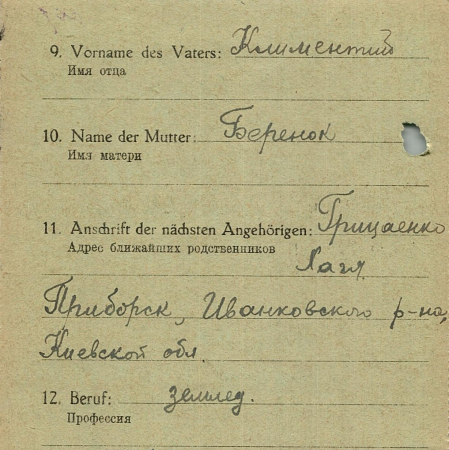 9. Vorname des Vaters: Климентий
Имя отца
10. Name der Mutter: Беренок
Имя матери
11. Anschrift der nächsten Angehörigen: Грицаенко
Адрес ближайших родственников
Приборск, Иванковского р-на,
Киевской обл.
12. Beruf: землед.
Профессия